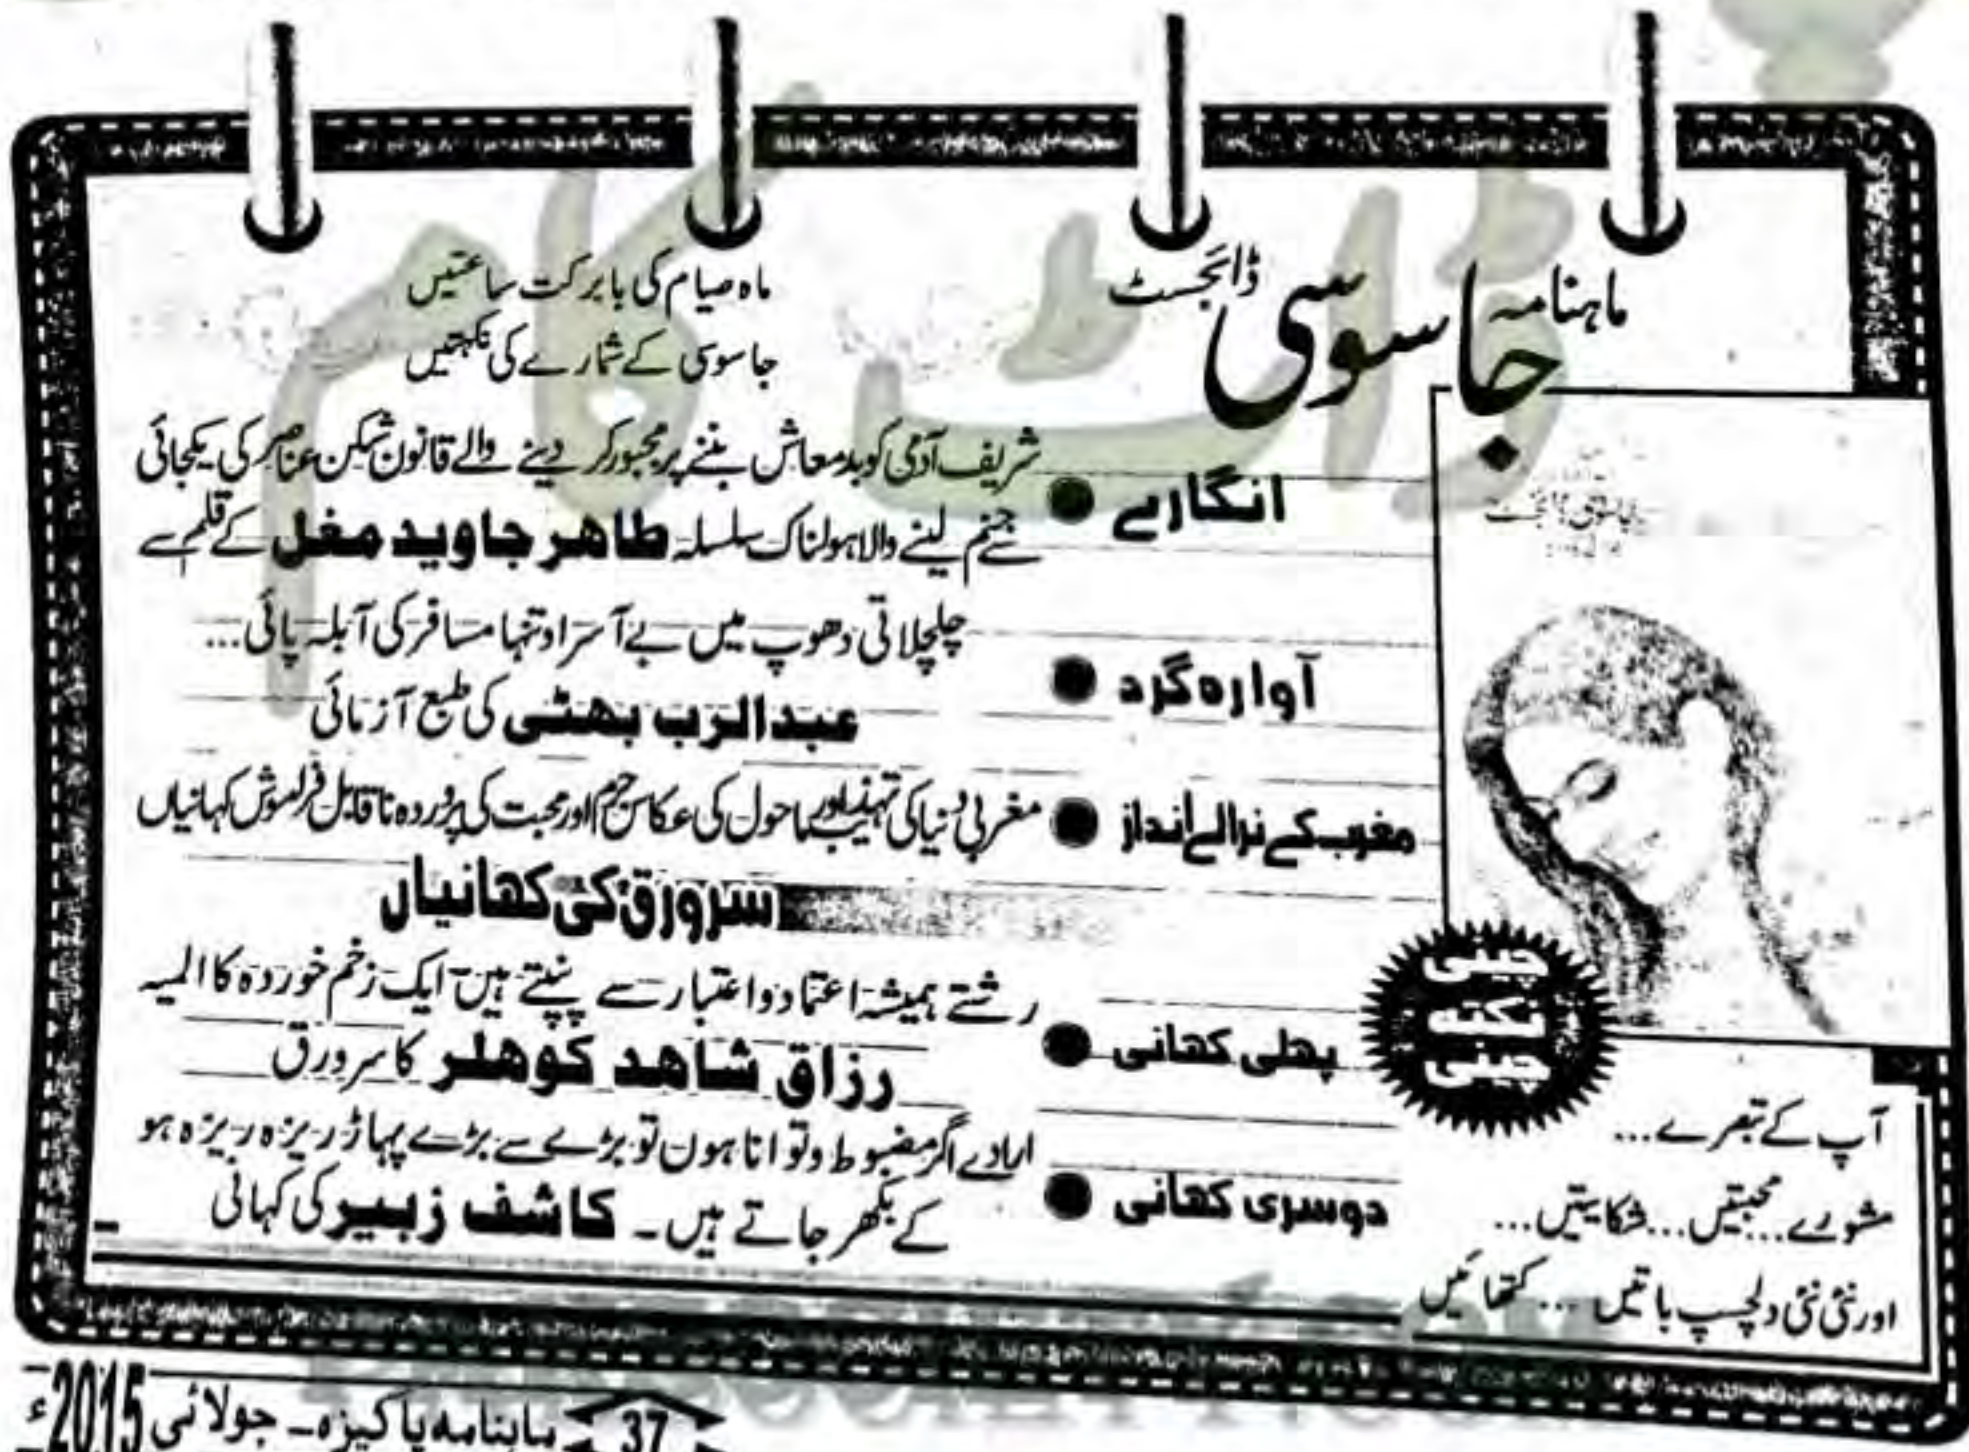 ماہنامہ جاسوسی ڈائجسٹ
ماہ صیام کی بابرکت ساعتیں
جاسوسی کے شمارے کی نکہتیں
انگارے ● شریف آدمی کو بدمعاش بننے پر مجبور کر دینے والے قانون شکن عناصر کی یکجائی
سے جنم لینے والا ہولناک سلسلہ طاہر جاوید مغل کے قلم سے
آوارہ گرد ● چلچلاتی دھوپ میں بے آسرا و تنہا مسافر کی آبلہ پائی...
عبدالرب بھٹی کی طبع آزمائی
مغرب کے نرالے انداز ● مغربی دنیا کی تہذیب اور ماحول کی عکاس جرم اور محبت کی پروردہ ناقابل فراموش کہانیاں
سرورق کی کہانیاں
پہلی کہانی ● رشتے ہمیشہ اعتماد و اعتبار سے پنپتے ہیں ایک زخم خوردہ کا المیہ
رزاق شاہد کوہلر کا سرورق
دوسری کہانی ● ارادے اگر مضبوط و توانا ہوں تو بڑے سے بڑے پہاڑ ریزہ ریزہ ہو
کے بکھر جاتے ہیں۔ کاشف زبیر کی کہانی
چینی
نکتہ
چینی
آپ کے تبصرے...
مشورے... محبتیں... شکایتیں...
اور نئی نئی دلچسپ باتیں... کتھائیں
37 ماہنامہ پاکیزہ۔ جولائی 2015ء
ڈاٹ کام